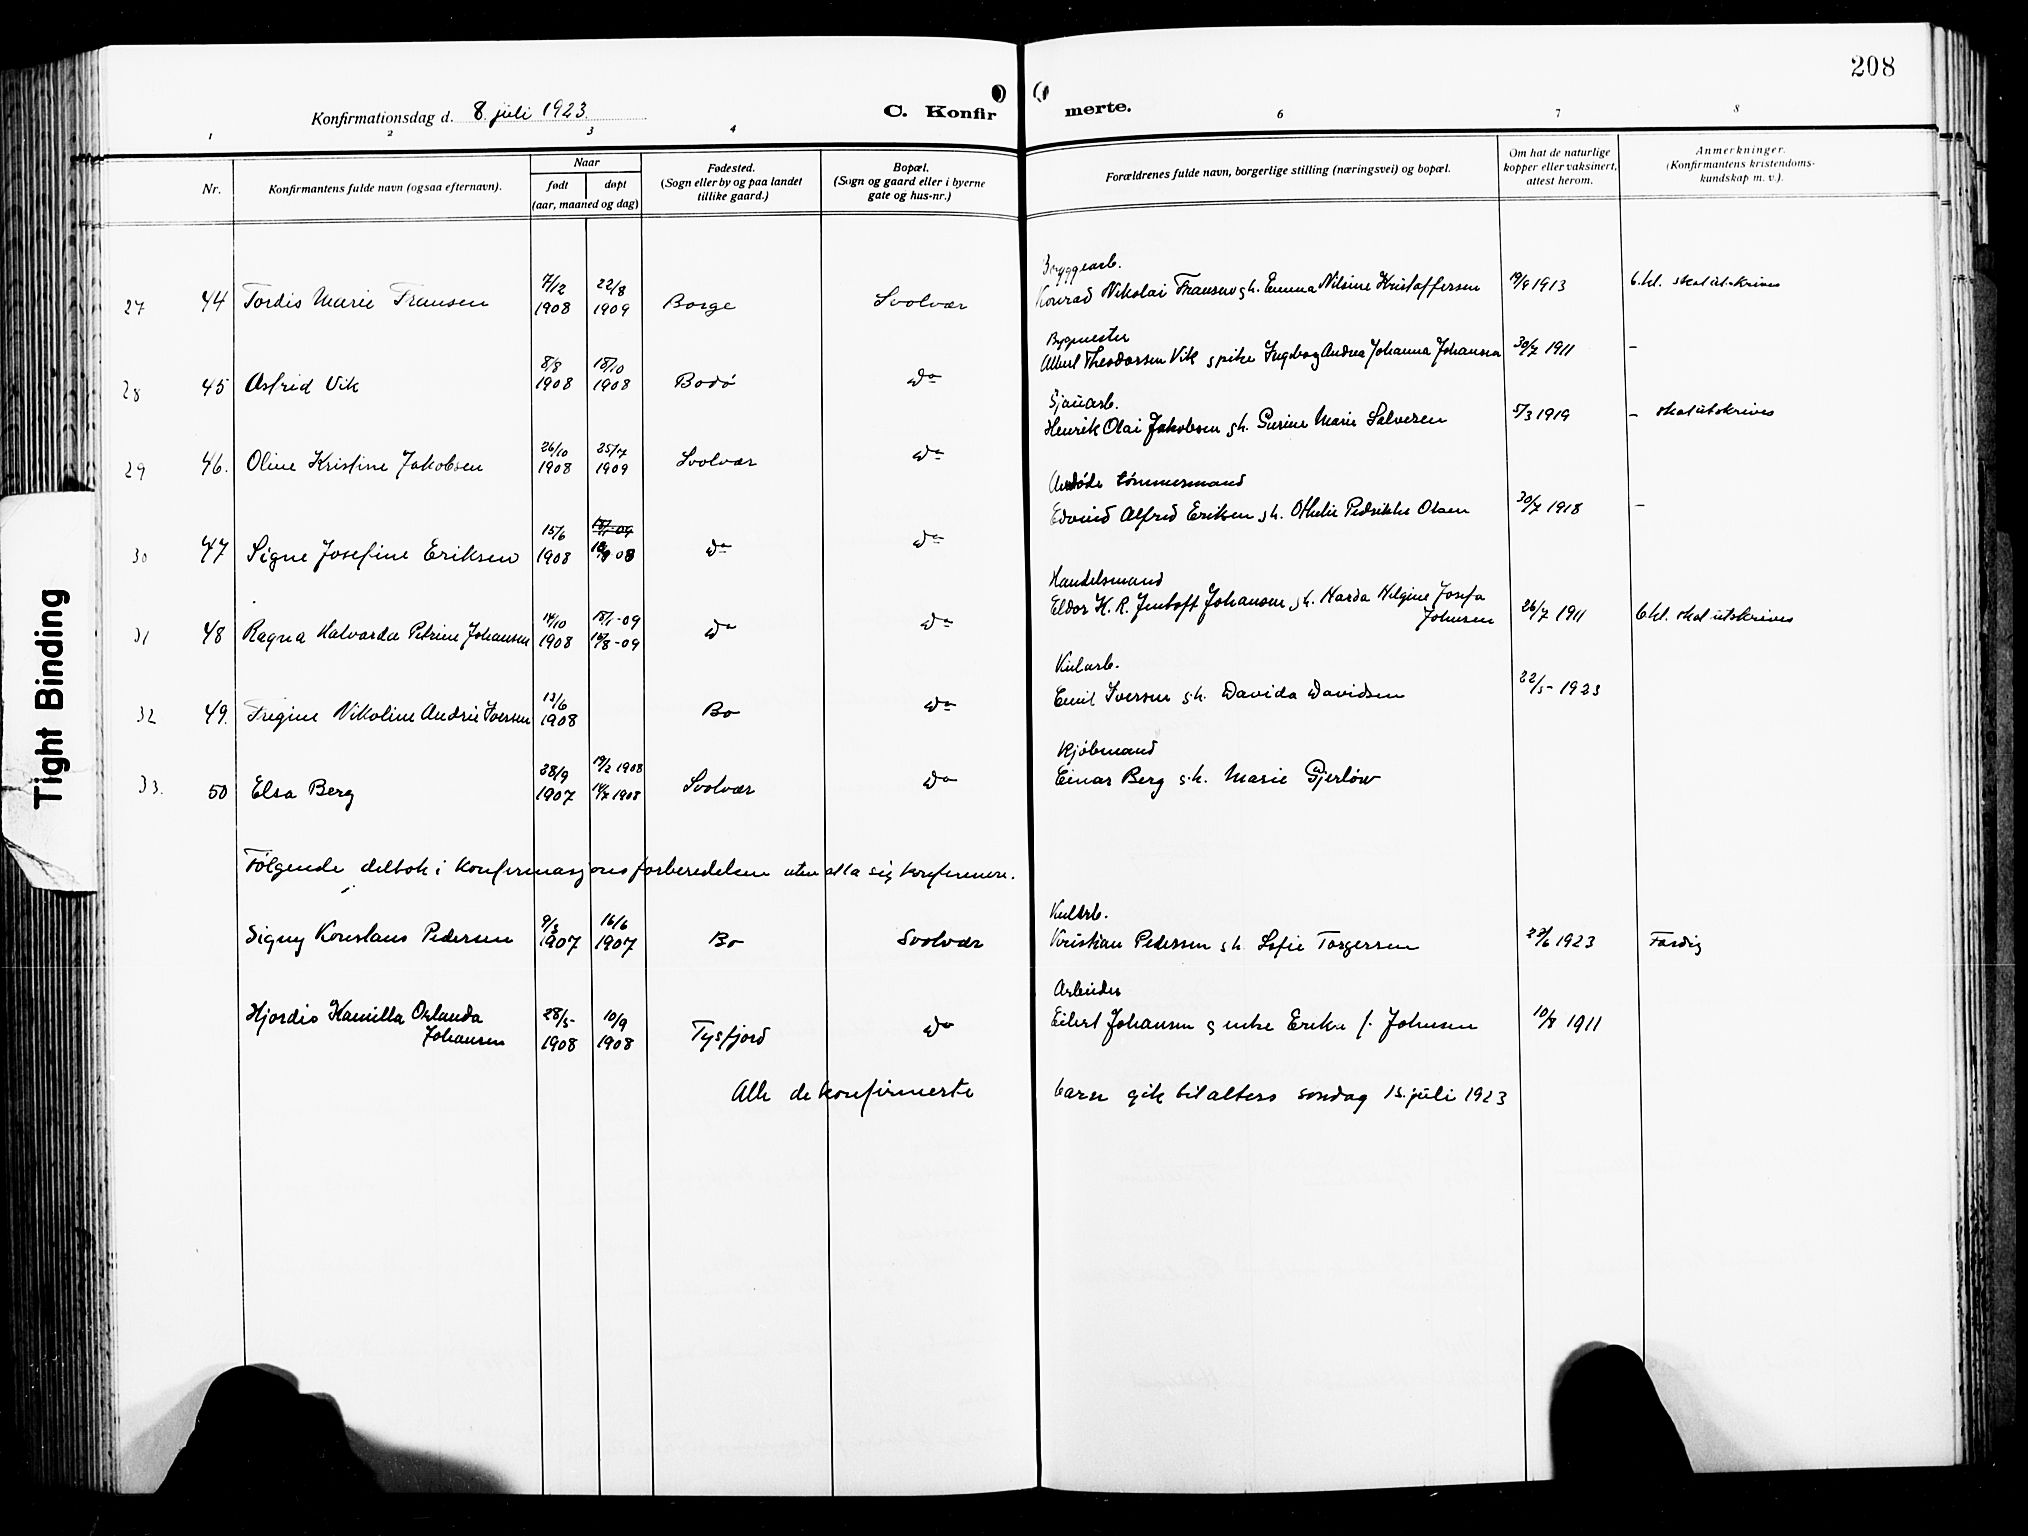 208
Konfirmationsdag d. 8. juli 1923.
C. Konfirmerte.
1 2 3 4 6 7 8
Nr.
Konfirmantens fulde navn (ogsaa efternavn).
Naar
født døpt
(aar, maaned og dag)
Fødested.
(Sogn eller by og paa landet
tillike gaard.)
Bopæl.
(Sogn og gaard eller i byerne
gate og hus-nr.)
Forældrenes fulde navn, borgerlige stilling (næringsvei) og bopæl.
Om hat de naturlige
kopper eller vaksinert,
attest herom.
Anmerkninger.
(Konfirmantens kristendoms-
kundskap m. v.).
Bryggearb.
7/12 22/8
27 44 Tordis Marie Fransen 1908 1909 Borge Svolvær Konrad Nikolai Fransen g. h. Emma Nilsine Kristoffersen 19/9 1913 6 kl. skal utskrives
Bygmester
8/8 18/10
28 45 Astrid Vik 1908 1908 Bodø do Albert Theodorsen Vik g pike Ingeborg Andrea Johanna Johansen 30/7 1911 –
Sjauarb.
26/10 25/7
29 46. Oline Kristine Jakobsen 1908 1909 Svolvær do Henrik Olai Jakobsen g. h. Gurine Marie Salvesen 5/3 1919 – skal utskrives
Avdøde tømmermand
15/6
30 47 Signe Josefine Eriksen 1908 do do Edvind Alfred Eriksen g. h. Othelie Olsen 30/7 1918 –
Handelsmand
14/10 18/1-09
31 48 Ragna Halvarda Petrine Johansen 1908 15/8-09 do do Eldor H. R. Jentoft Johansen g. h. Harda Helgine Josefa
Johnsen 26/7 1911 6 kl. skal utskrives
Kularb.
13/6
32 49. Fregine Nikoline Andrie Iversen 1908 Bo do Emil Iversen g. h. Davida Davidsen 22/5-1923
Kjøbmand
28/9 19/2 1908
33. 50 Elsa Berg 1907 14/7 1908 Svolvær do Einar Berg g. h. Marie Gjerløw
Følgende deltok i konfirmasjonsforberedelsen uten at la sig konfirmere.
Kularb.
9/3 16/6
Signy Konstans Pedersen 1907 1907 Bo Svolvær Kristian Pedersen g h Sofie Torgersen 22/6 1923 Færdig
Arbeider
Hjordis Kamilla Orlanda 28/5- 10/9
Johansen 1908 1908 Tysfjord do Eilert Johansen g enke Erika f. Johnsen 10/8 1911
Alle de konfirmerte barn gik til alters søndag 15. juli 1923
Tight Binding